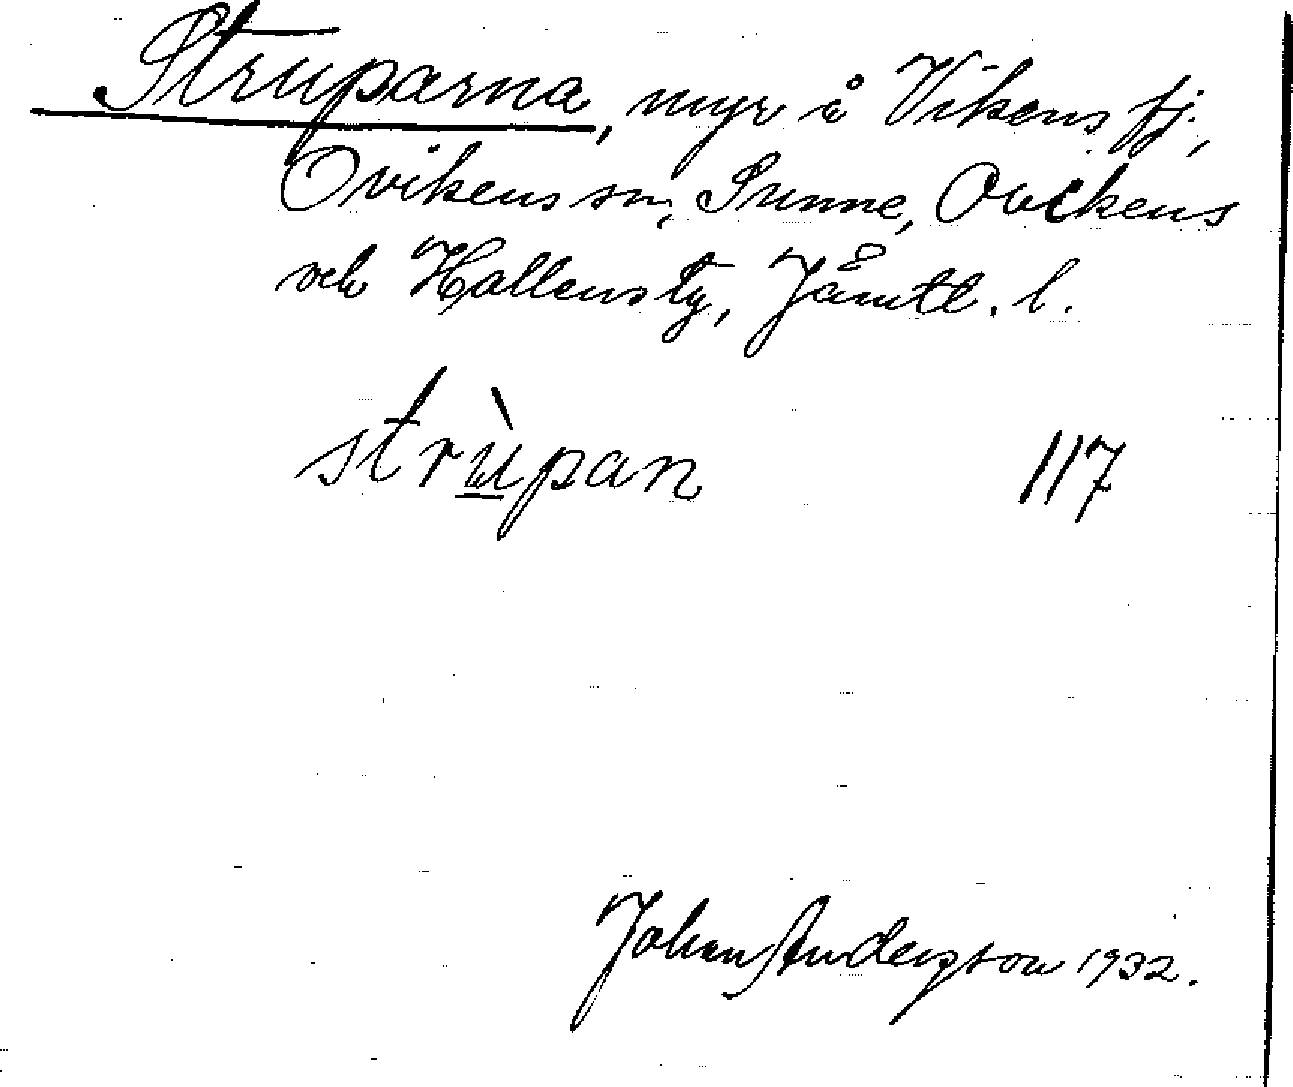 Struparna, myr å Vikens fj,
Ovikens sn, Sunne, Ovikens
och Hallens tg, Jämtl. l.
strùpan 117
Johan Anderson 1932.